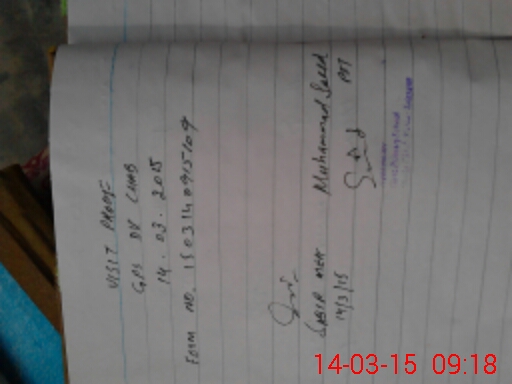 VISIT PROOF
GPS DK CHAB
14.03.2015
FORM NO. 1503140915109
SABIR MEH
14/3/15
Muhammad Saeed
PST
14-03-15 09:18